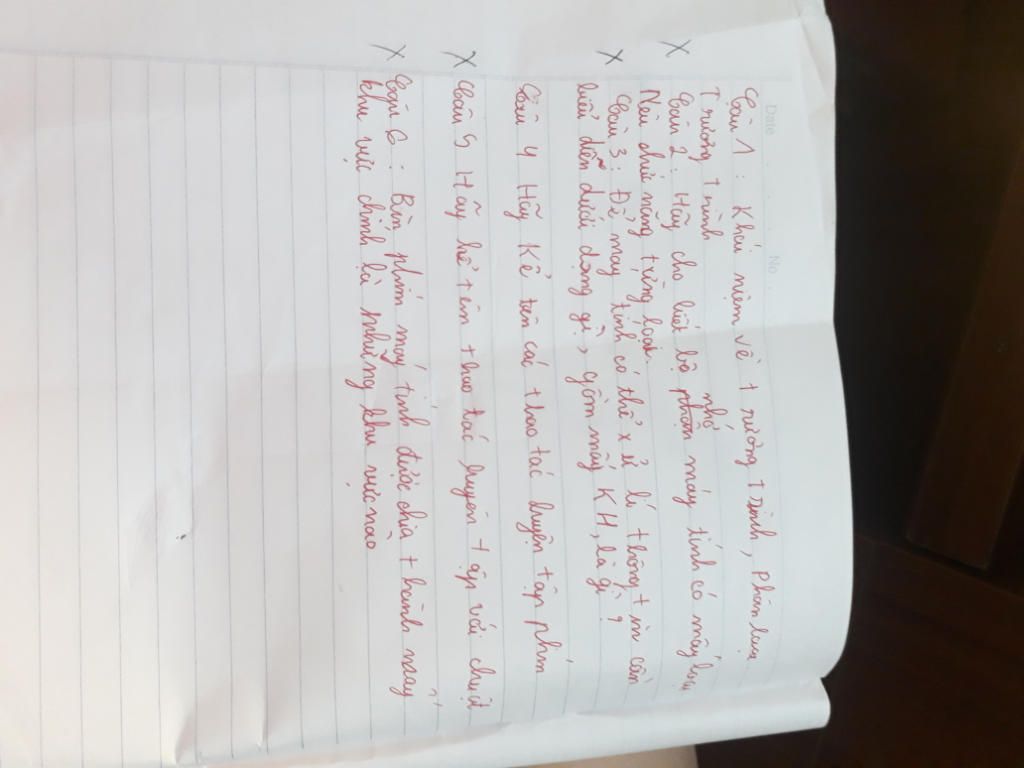 Date
No.
Câu 1 : Khái niệm về trường trình, phân loại
Trường trình
X Câu 2 : Hãy cho biết bộ nhớ máy tính có mấy loại
Nêu chức năng từng loại.
X Câu 3 : Để máy tính có thể xử lí thông tin cần
biểu diễn dưới dạng gì, gồm mấy KH, là gì ?
Câu 4 Hãy Kể tên các thao tác luyện tập phím
X Câu 5 Hãy kể tên thao tác luyện tập với chuột
X Câu 6 : Bàn phím máy tính được chia thành mấy
khu vực chính là những khu vực nào